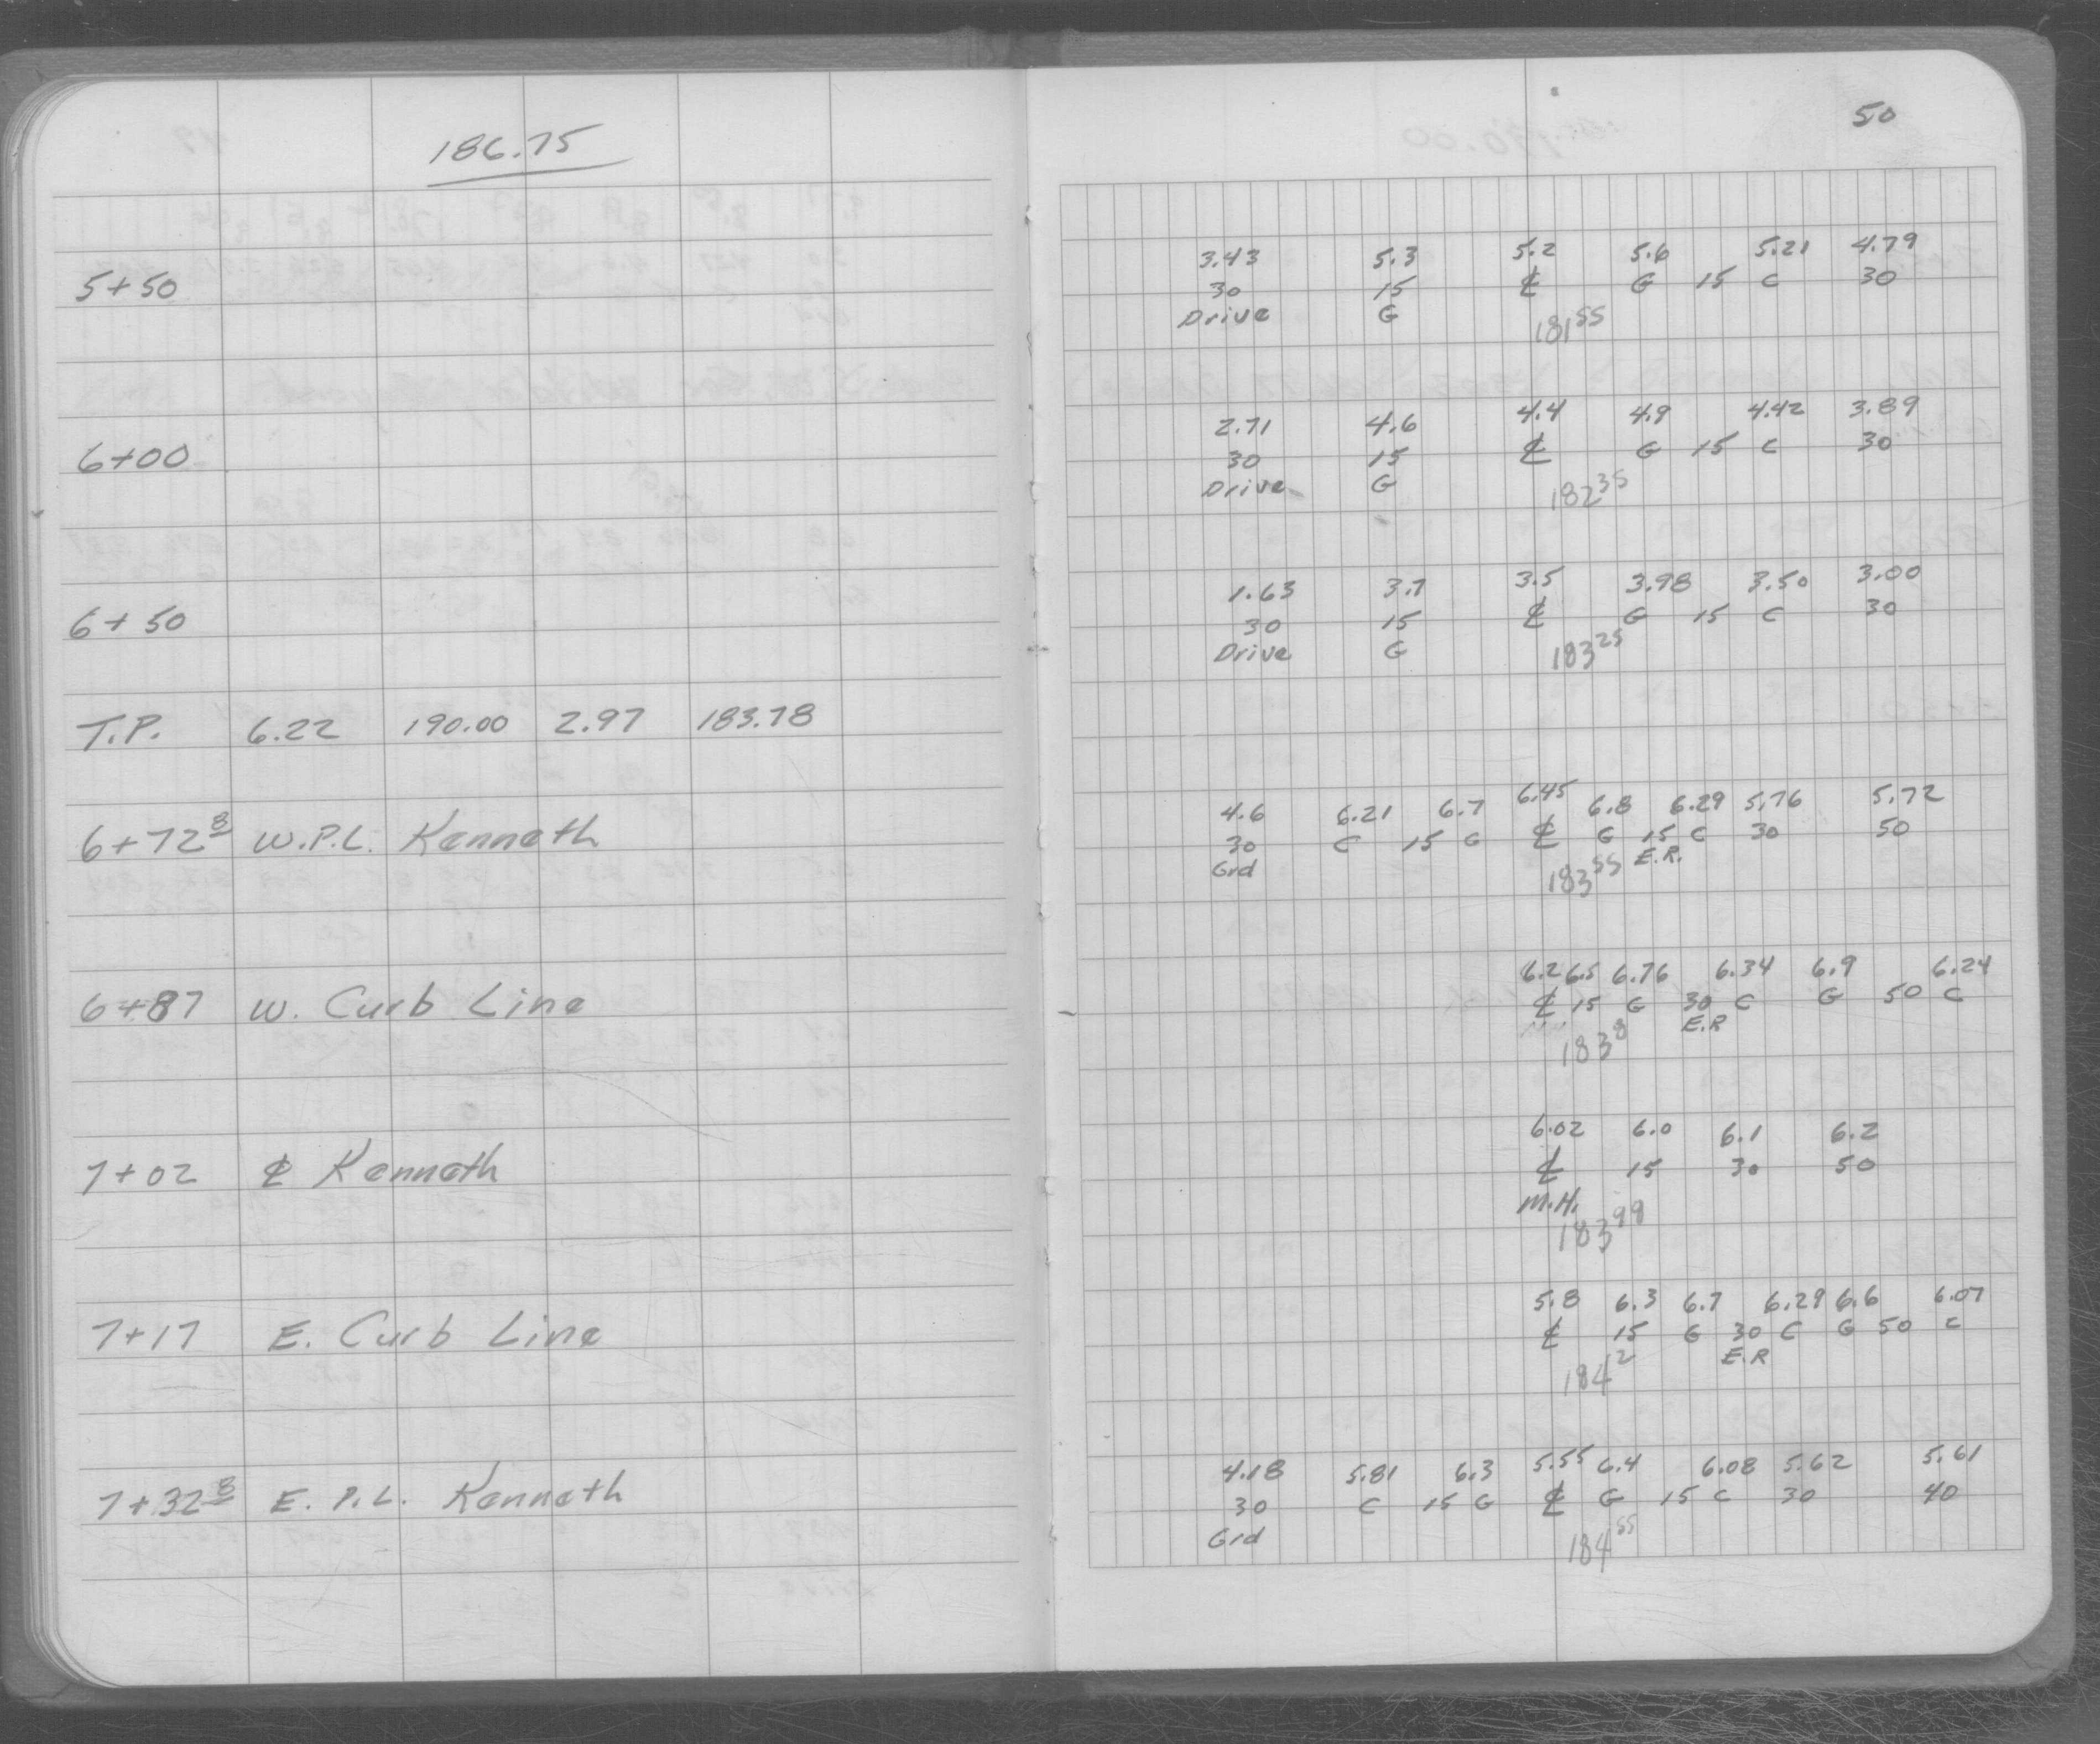 186.75
50
3.43 5.3 5.2 5.6 5.21 4.79
5+50 30 15 ℄ G 15 C 30
Drive G 181⁵⁵
2.71 4.6 4.4 4.9 4.42 3.89
6+00 30 15 ℄ G 15 C 30
Drive G 182³⁵
1.63 3.7 3.5 3.98 3.50 3.00
6+50 30 15 ℄ G 15 C 30
Drive G 183²⁵
T.P. 6.22 190.00 2.97 183.78
4.6 6.21 6.7 6.45 6.8 6.29 5.76 5.72
6+72⁸ W.P.L. Kenneth 30 C 15 G ℄ G 15 C 30 50
Grd 183⁵⁵ E.R.
6.2 6.5 6.76 6.34 6.9 6.24
6+87 W. Curb Line ℄ 15 G 30 C G 50 C
183⁸ E.R
6.02 6.0 6.1 6.2
7+02 ℄ Kenneth ℄ 15 30 50
M.H.
183⁹⁹
5.8 6.3 6.7 6.29 6.6 6.07
7+17 E. Curb Line ℄ 15 G 30 C G 50 C
184² E.R
4.18 5.81 6.3 5.55 6.4 6.08 5.62 5.61
7+32⁸ E. P.L. Kenneth 30 C 15 G ℄ G 15 C 30 40
Grd 184⁵⁵